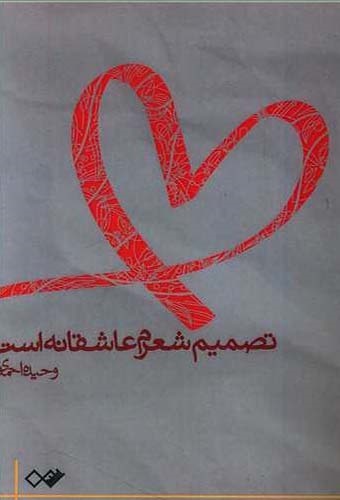 تصمیم شعرم عاشقانه است
وحیده احمدی